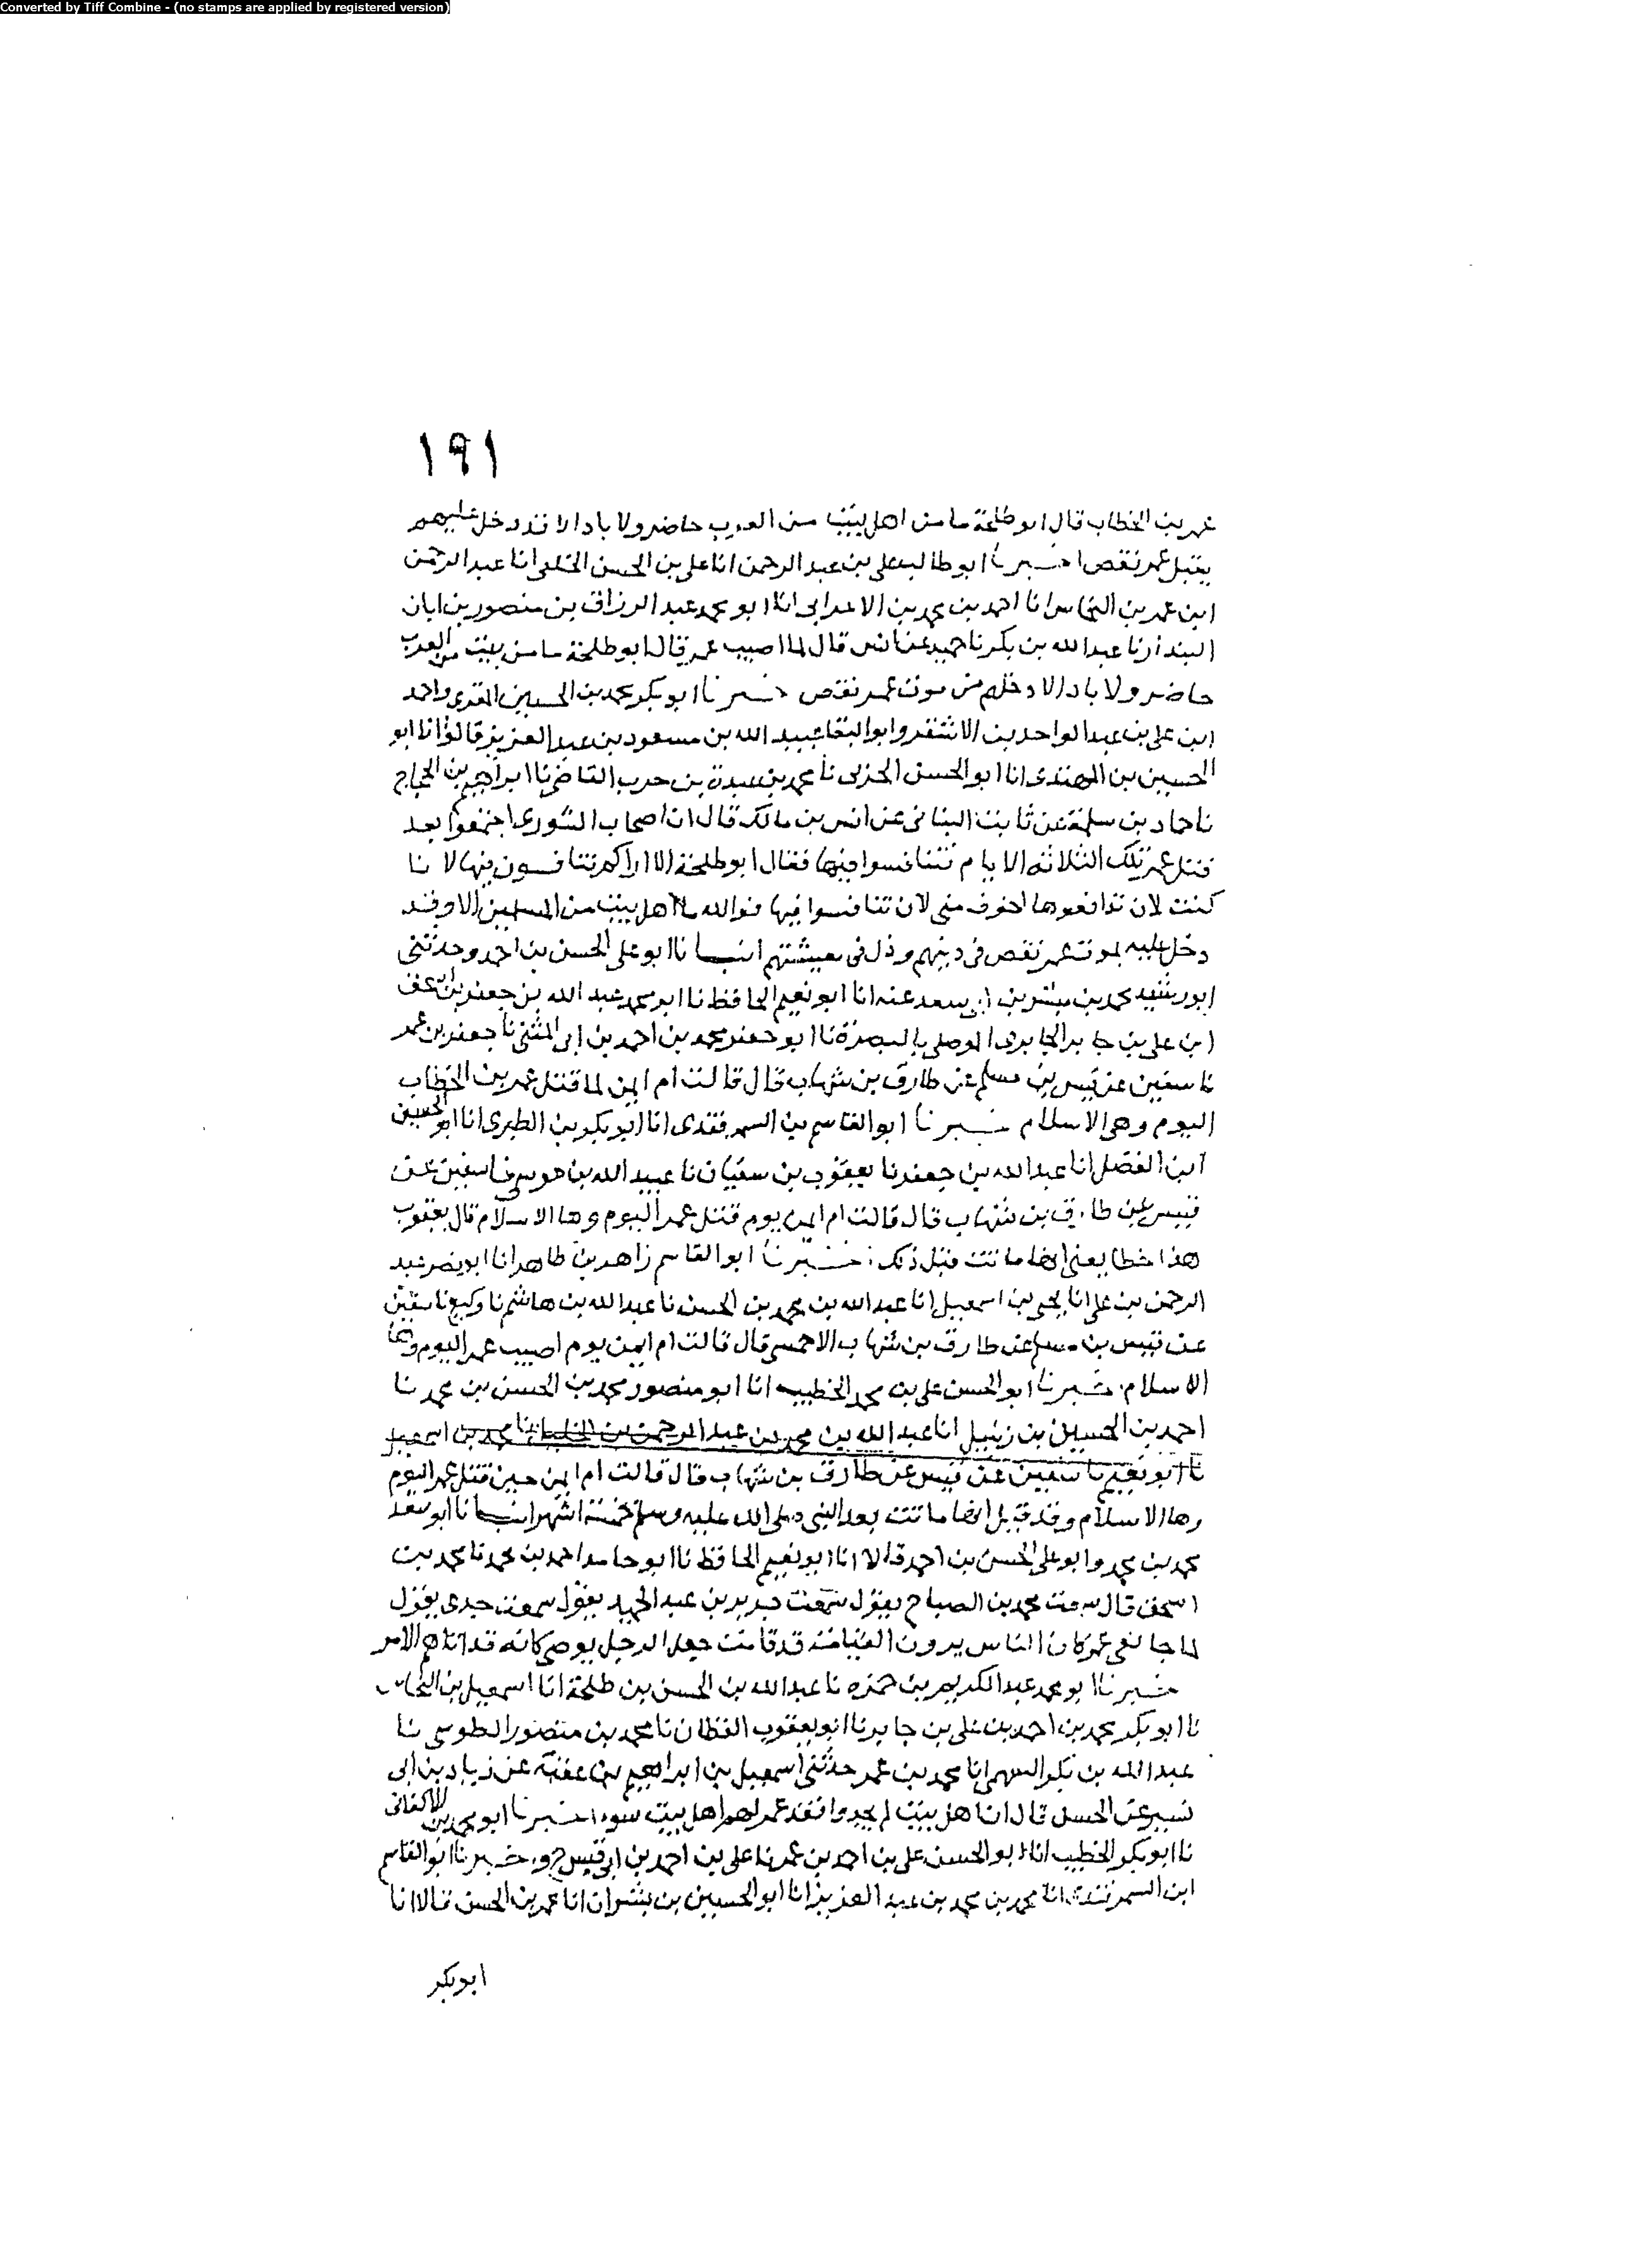 Converted by Tiff Combine - (no stamps are applied by registered version)
١٩١
عمر بن الخطاب قال ابو طلحة ما من اهل بيت من العرب حاضر ولا باد الا قد دخل عليهم
بقتل عمر نقص اخبرنا ابو طالب علي بن عبد الرحمن انا علي بن الحسن الخلعي انا عبد الرحمن
ابن عمر بن النحاس انا احمد بن محمد بن الاعرابي انا ابو محمد عبد الرزاق بن منصور بن ابان
البندار نا عبد الله بن بكر نا حميد عن انس قال لما اصيب عمر قال ابو طلحة ما من بيت من العرب
حاضر ولا باد الا دخلهم من موت عمر نقص خبرنا ابو بكر محمد بن الحسين المقري واحمد
ابن علي بن عبد الواحد بن الاشقر وابو البقا عبيد الله بن مسعود بن عبد العزيز قالوا انا ابو
الحسين بن المهتدى انا ابو الحسن الحربى نا محمد بن عبدة بن حرب القاضي نا ابراهيم بن الحجاج
نا حماد بن سلمة عن ثابت البنانى عن انس بن مالك قال ان اصحاب الشورى اجتمعوا بعد
قتل عمر تلك الثلاثه الايام تتنافسوا فيها فقال ابو طلحة الا اراكم تتنافسون فيها لا نا
كنت لان تدافعوها اخوف منى لان تنافسوا فيها فوالله ما اهل بيت من المسلمين الا وقد
دخل عليه بموت عمر نقص فى دينهم وذل فى معيشتهم انبانا ابو على الحسن بن احمد وحدثنى
ابو رشيد محمد بن مبشر بن ابى سعد عنه انا ابو نعيم الحافظ نا ابو محمد عبد الله بن جعفر بن اسحق
ابن علي بن جابر الجابرى الموصلى بالبصرة نا ابو جعفر محمد بن احمد بن ابى المثنى نا جعفر بن عمر
نا سفين عن قيس بن مسلم عن طارق بن شهاب قال قالت ام ايمن لما قتل عمر بن الخطاب
اليوم وهى الاسلام خبرنا ابو القاسم بن السمرقندى انا ابو بكر بن الطبرى انا ابو الحسين
ابن الفضل انا عبد الله بن جعفر نا يعقوب بن سفيان نا عبيد الله بن موسى نا سفين عن
قيس عن طارق بن شهاب قال قالت ام ايمن يوم قتل عمر اليوم وها الاسلام قال يعقوب
هذا خطا يعنى انها ماتت قبل ذلك خبرنا ابو القاسم زاهر بن طاهر انا ابو نصر عبد
الرحمن بن على انا يحيى بن اسمعيل انا عبد الله بن محمد بن الحسن نا عبد الله بن هاشم نا وكيع نا سفين
عن قيس بن مسلم عن طارق بن شهاب الاحمسى قال قالت ام ايمن يوم اصيب عمر اليوم وها
الاسلام خبرنا ابو الحسن على بن محمد الخطيب انا ابو منصور محمد بن الحسن بن محمد نا
احمد بن الحسين بن زنبيل انا عبد الله بن محمد بن عبد الرحمن بن الخليل نا محمد بن اسمعيل
نا ابو نعيم نا سفين عن قيس عن طارق بن شهاب قال قالت ام ايمن حين قتل عمر اليوم
وها الاسلام وقد قيل انها ماتت بعد النبى صلى الله عليه وسلم بخمسة اشهر انبانا ابو سعد
محمد بن محمد وابو على الحسن بن احمد قالا انا ابو نعيم الحافظ نا ابو حامد احمد بن محمد نا محمد بن
اسحق قال سمعت محمد بن الصباح يقول سمعت جرير بن عبد الحميد يقول سمعت جدى يقول
لما جا نعى عمر كان الناس يرون القيامة قد قامت جعل الرجل يوصى كانه قد اتاهم الامر
خبرنا ابو محمد عبد الكريم بن حمزه نا عبد الله بن الحسن بن طلحة انا اسمعيل بن النحاس
نا ابو بكر محمد بن احمد بن على بن جابر نا ابو يعقوب القطان نا محمد بن منصور الطوسى نا
عبد الله بن بكر السهمى انا محمد بن عمر حدثنى اسمعيل بن ابراهيم بن عقبه عن زياد بن ابى
بشير عن الحسن قال ان اهل بيت لم يجدوا فقد عمر لهم اهل بيت سوء اخبرنا ابو محمد بن الاكفانى
نا ابو بكر الخطيب انا ابو الحسن على بن احمد بن عمر نا على بن احمد بن ابى قيس ح وخبرنا ابو القاسم
ابن السمرقندى انا محمد بن محمد بن عبد العزيز انا ابو الحسين بن بشران انا عمر بن الحسن قالا انا
ابو بكر